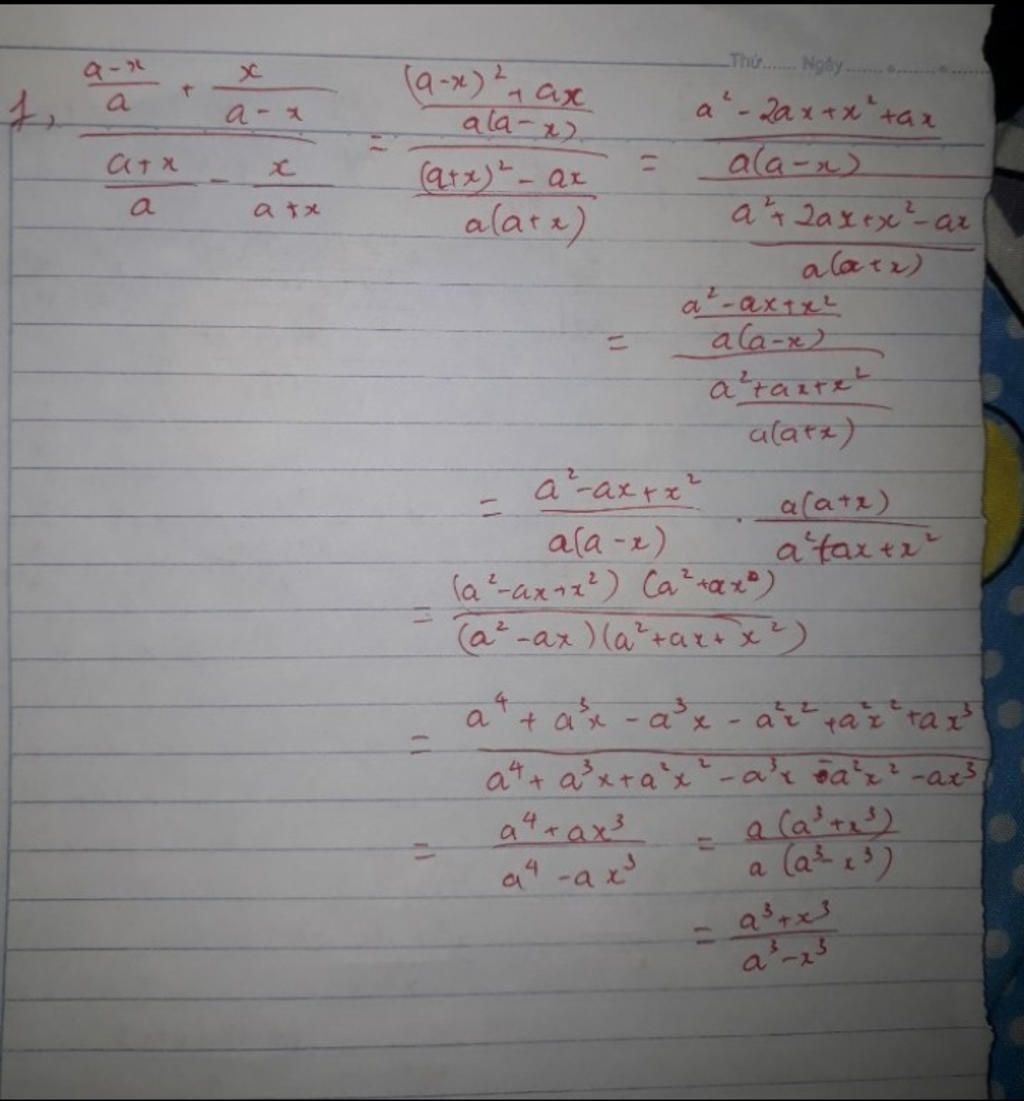 Thứ...... Ngày...............
f, ((a-x)/a + x/(a-x)) / ((a+x)/a - x/(a+x)) = (((a-x)² + ax)/(a(a-x))) / (((a+x)² - ax)/(a(a+x))) = ((a² - 2ax + x² + ax)/(a(a-x))) / ((a² + 2ax + x² - ax)/(a(a+x)))
= ((a² - ax + x²)/(a(a-x))) / ((a² + ax + x²)/(a(a+x)))
= (a² - ax + x²)/(a(a-x)) · (a(a+x))/(a² + ax + x²)
= ((a² - ax + x²) (a² + ax))/((a² - ax)(a² + ax + x²))
= (a⁴ + a³x - a³x - a²x² + a²x² + ax³)/(a⁴ + a³x + a²x² - a³x - a²x² - ax³)
= (a⁴ + ax³)/(a⁴ - ax³) = (a(a³ + x³))/(a(a³ - x³))
= (a³ + x³)/(a³ - x³)